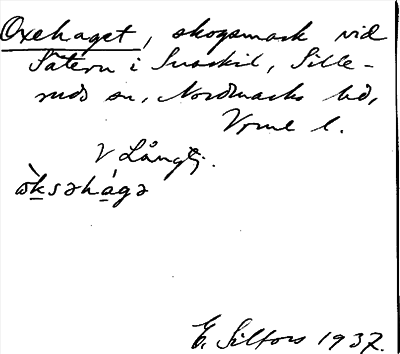 Oxehaget, skogsmark vid
Sätern i Svaskil, Sille-
ruds sn, Nordmarks hd,
Vrml l.
V Långtj.
ὼksəhágə
E. Silfors 1937.